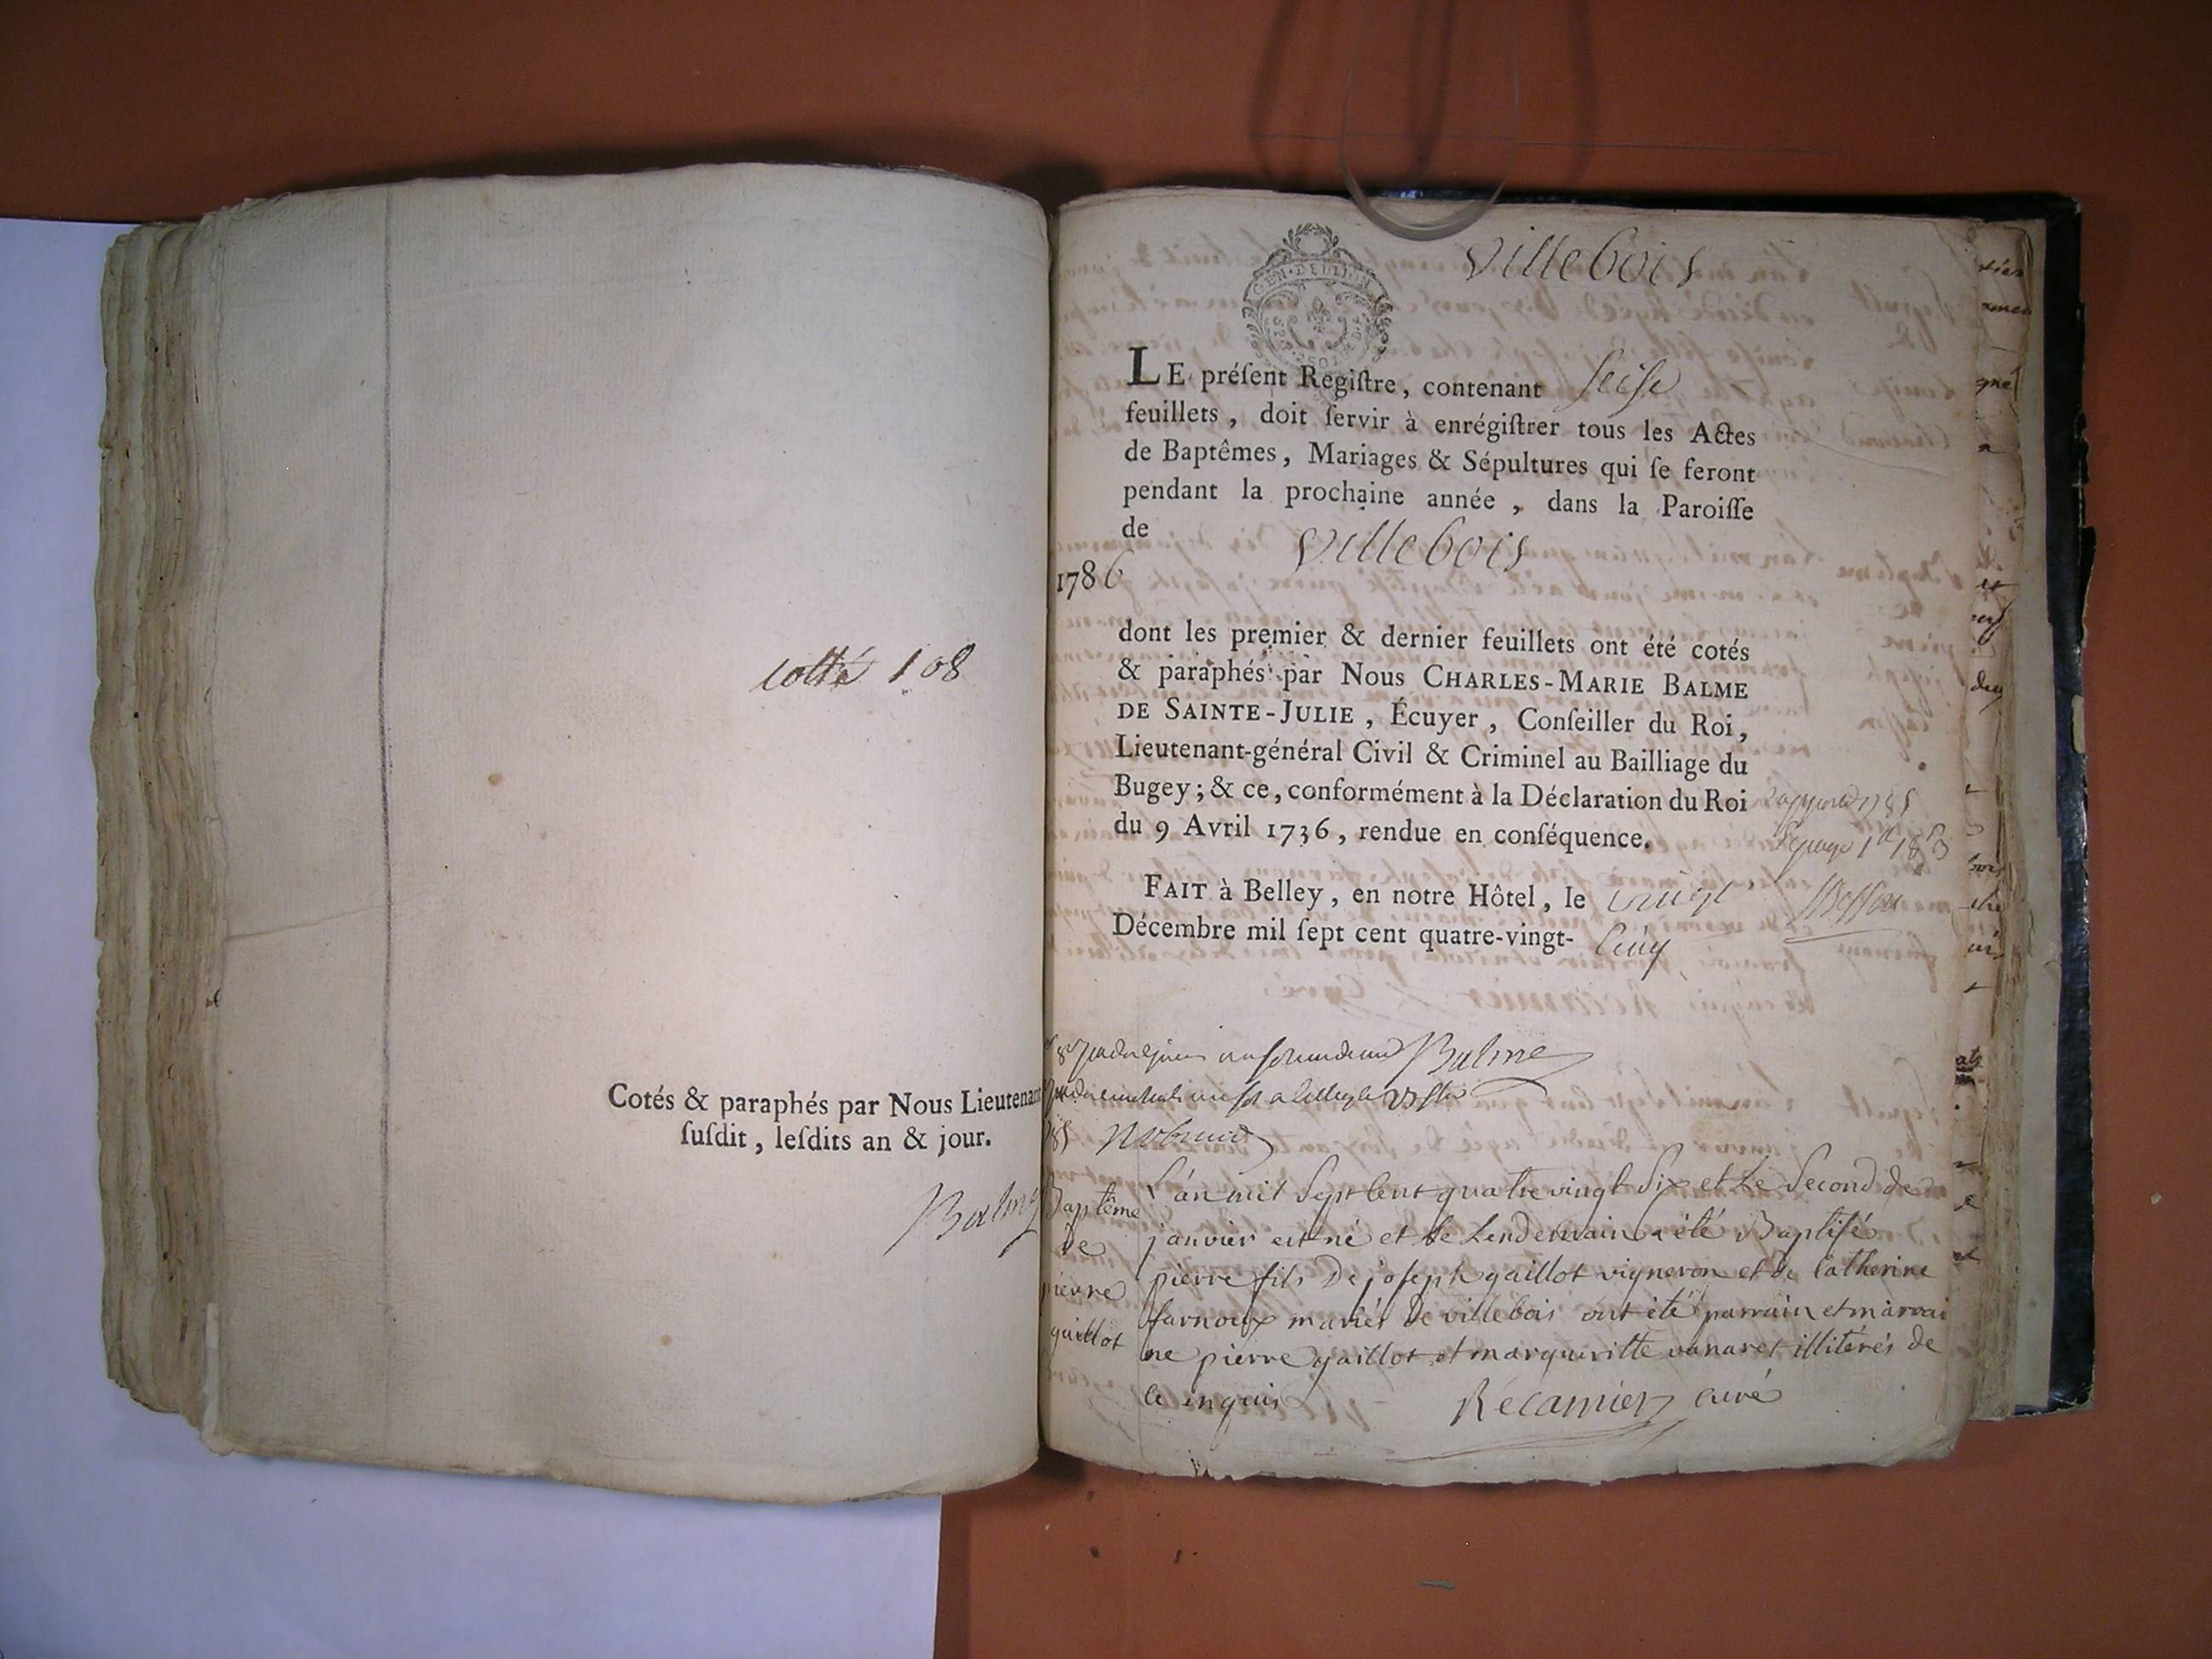 cotté 108
Cotés & paraphés par Nous Lieutenant
ſuſdit, leſdits an & jour.
Balme
Villebois
GEN. DE LION
LE préſent Regiſtre, contenant seise
feuillets, doit ſervir à enrégiſtrer tous les Actes
de Baptêmes, Mariages & Sépultures qui ſe feront
pendant la prochaine année, dans la Paroiſſe
de Villebois
1786
dont les premier & dernier feuillets ont été cotés
& paraphés par Nous CHARLES-MARIE BALME
DE SAINTE-JULIE, Écuyer, Conſeiller du Roi,
Lieutenant-général Civil & Criminel au Bailliage du
Bugey; & ce, conformément à la Déclaration du Roi
du 9 Avril 1736, rendue en conſéquence.
FAIT à Belley, en notre Hôtel, le vingt
Décembre mil ſept cent quatre-vingt-cinq
Balme
Baptême
de
pierre
gaillot
L'an mil sept cent quatre vingt six et le second de
janvier est né et le lendemain a été Baptisé
pierre fils de joseph gaillot vigneron et de catherine
farnoux mariés de villebois ont été parrain et marrai
ne pierre gaillot et margueritte vanaret illitérés de
ce enquis Recamier curé